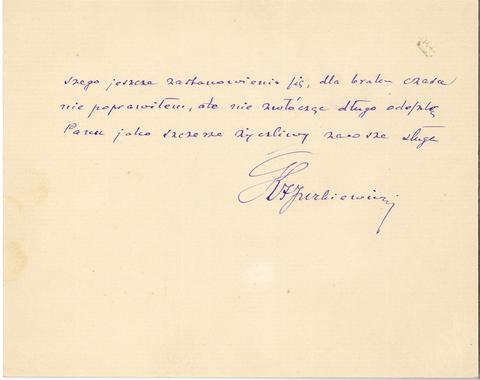 szego jeszcze zastanowienia się, dla braku czasu
nie poprawiłem, ale nie zwłócząc długo odeszlę
Panu jako szczerze życzliwy zawsze sługa